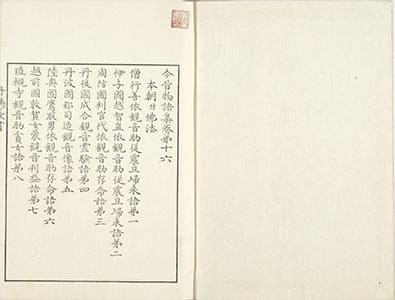 今昔物語集巻第十六
本朝付佛法
僧行善依観音助従震旦帰来語第一
伊予國越智直依観音助従震旦帰来語第二
周防國判官代依観音助存命語第三
丹後國成合観音霊驗語第四
丹波國郡司造観音像語第五
陸奥國鷹取男依観音助存命語第六
越前國敦賀女蒙観音利益語第七
殖槻寺観音助貧女語第八